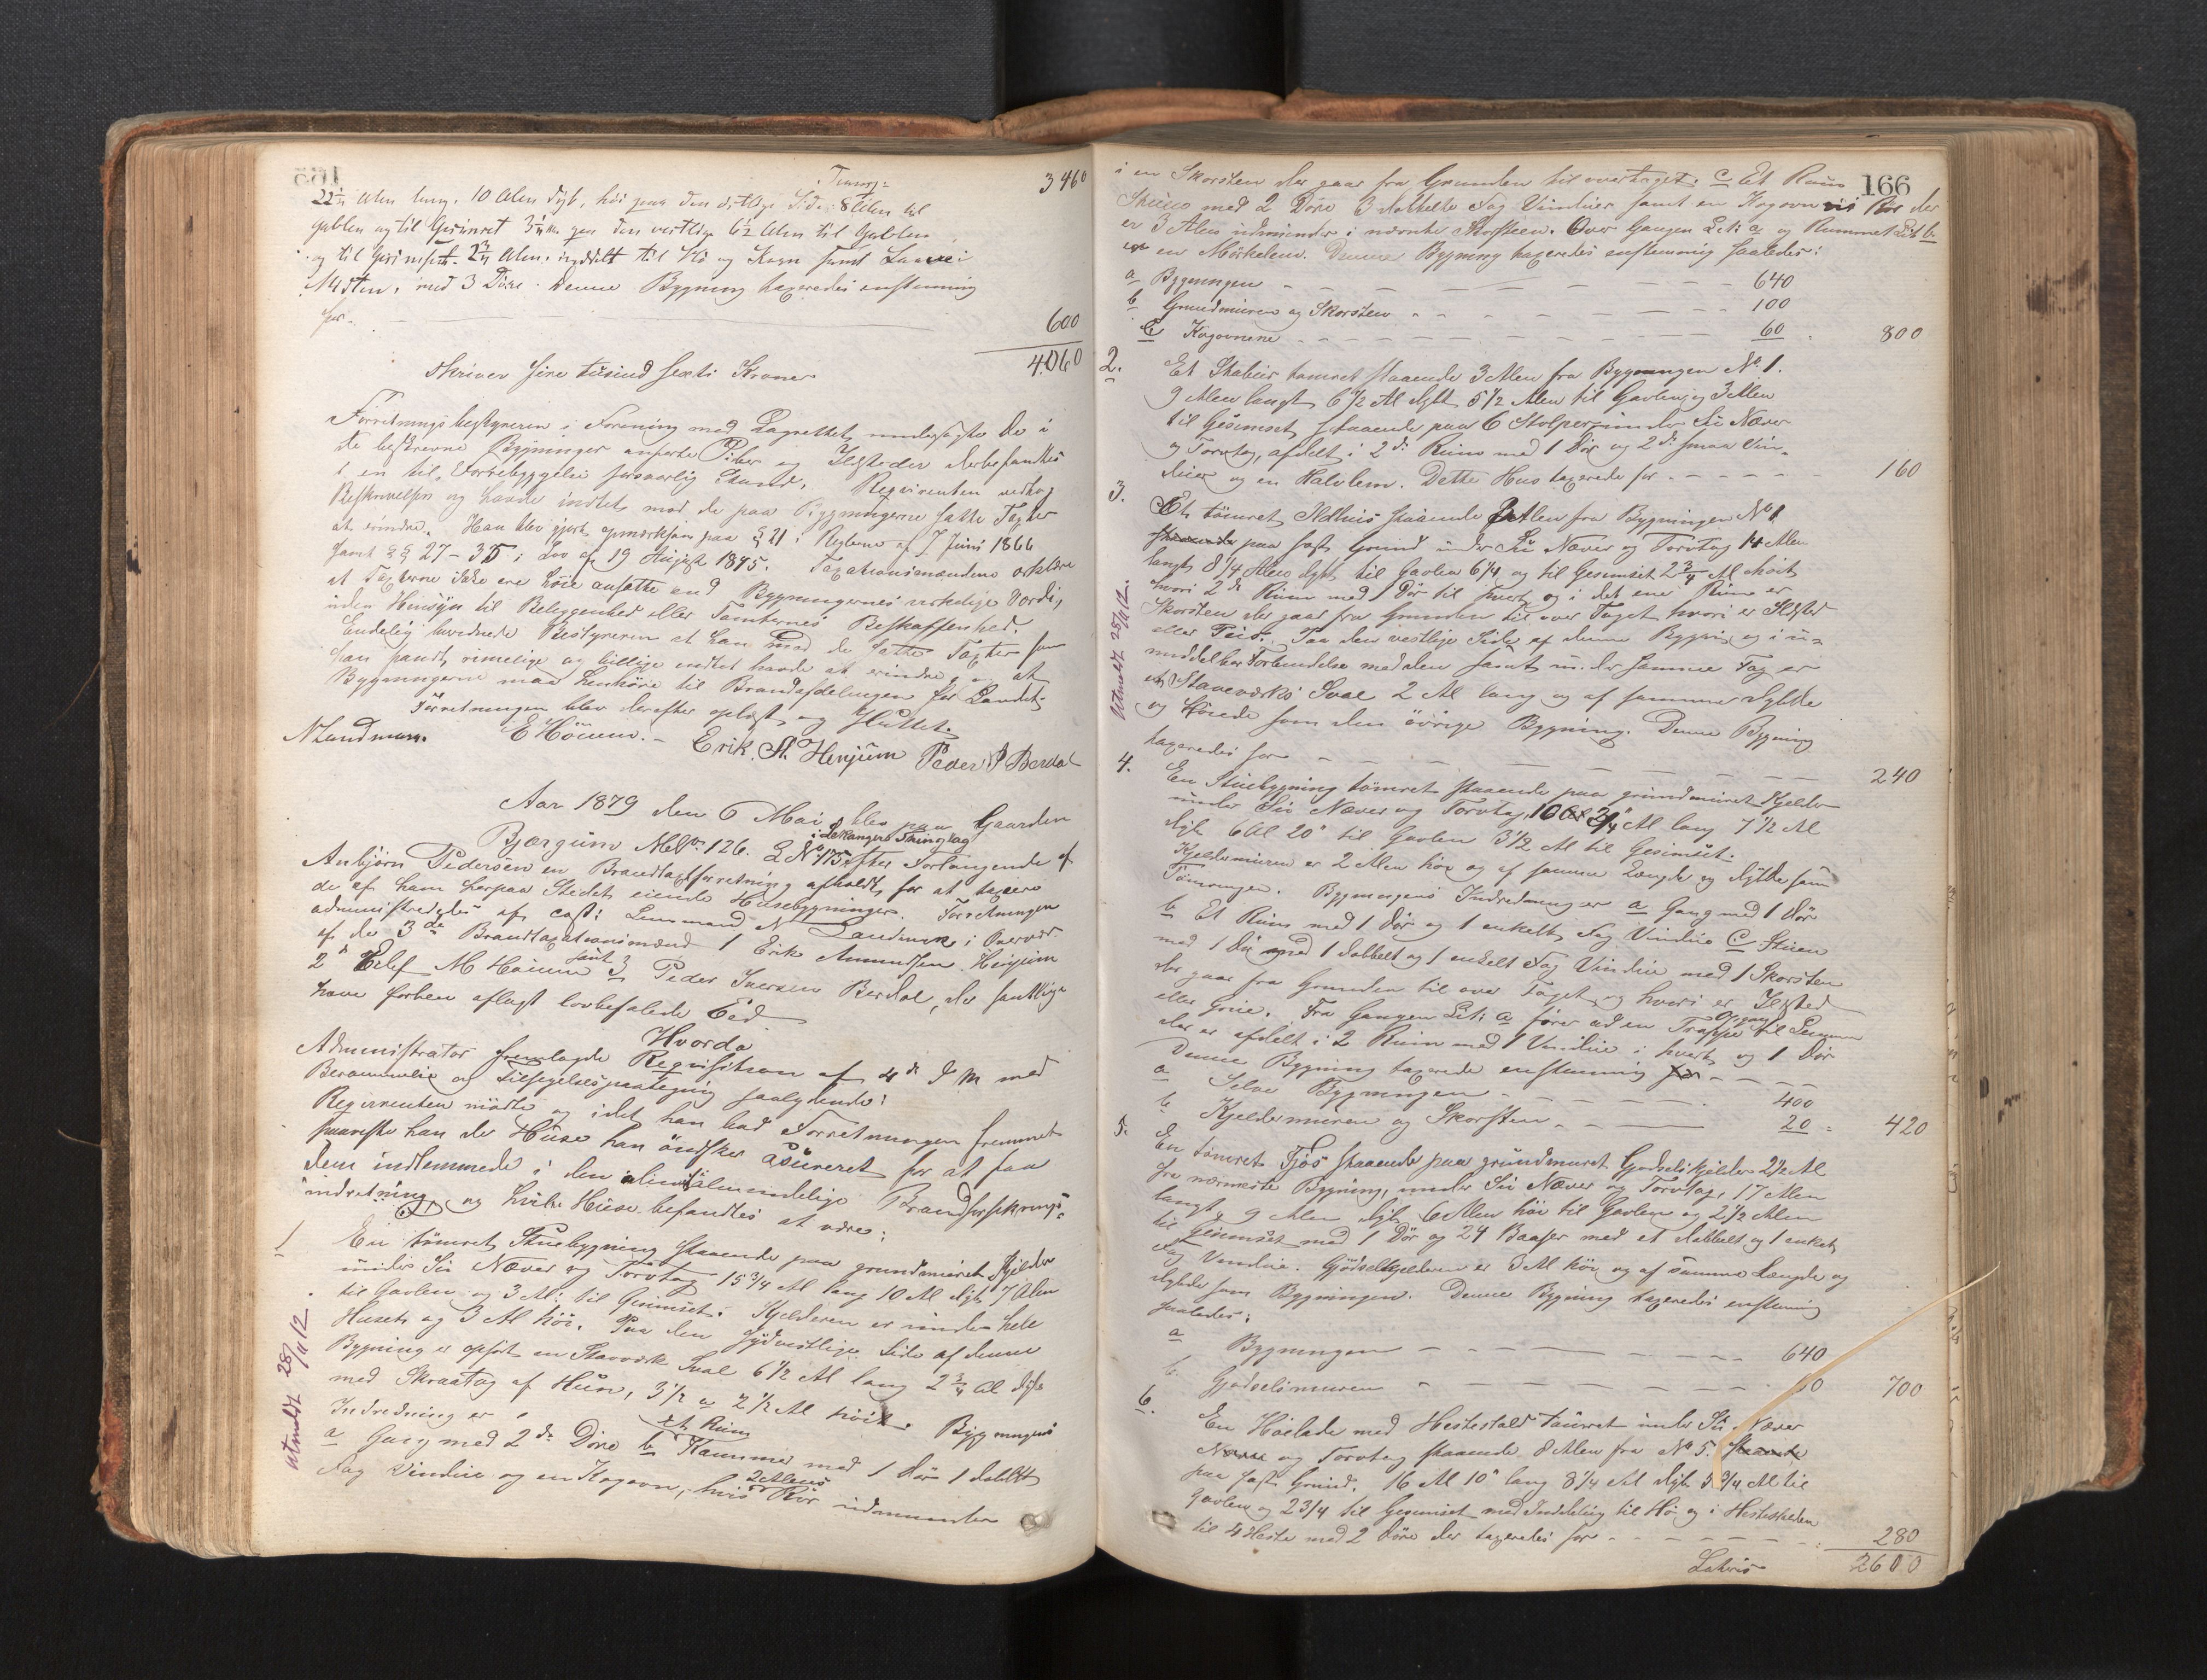 Transp:
3460
22½ Alen lang. 10 Alen dyb, høi paa den østlige Side 8 Alen til
gablen og til Gesimset 3¼ Al. paa den vestlige 6½ Alen til Gablen
og til Gesimset 2¾ Alen. inddelt til Hø og Korn samt Laave i
Midten, med 3 Døre. Denne Bygning taxeredes enstemmig
for. 600
4060
Skriver fire tusind sexti Kroner
Forretningsbestyreren i Forening med Lagrettet undersøgte de i
de beskrevne Bygninger anførte Piber og Ildsteder der befandtes
i en til Forrebyggelse forsvarlig Stand. Reqvirenten vedtog
Beskrivelsen og havde intet mod de paa Bygningerne satte Taxter
at erindre. Han blev gjort opmærksom paa § 21 i Reglerne af 7 Juni 1866
samt §§ 27-35 i Lov af 19 August 1845. Taxationsmændene erklære
at Taxterne ikke ere høie ansatte end Bygningernes virkelige Værdi,
uden Hensyn til Beleggenhed eller Tomternes Beskaffenhed.
Endelig bevidnede Bestyreren at han mod de satte Taxter som
han fandt rimelige og billige indtet havde at erindre, at
Bygningerne maa henhøre til Brandafdelingen for Landet.
Forretningen blev derefter oplæst og Sluttet.
N Landmark. E Hönum. - Erik A. Henjum Peder I Berdal
Aar 1879 den 6 Mai blev paa Gaarden
i Lekangers Thinglag
Bjærgum M No 126. L No 175 efter Forlangende af
Anbjørn Pedersen en Brandtaxtforretning afholdt for at taxere
de af ham herpaa Stedet eiende Husebygninger. Forretningen
administredes af cost: Lensmand N Landmark i Overvær
af de 3de Brandtaxationsmænd 1 Erik Amundsen Henjum
2 Elef M Hönum samt 3 Peder Iversen Berdal, der samtlige
have forhen aflagt lovbefalede Eed
Hvorda
Administrator fremlagde Reqvisition af 4de d M med
Berammelse og Tilsigelsespaategning saalydende:
Reqvirenten mödte og idet han bad Forretningen fremmet
paaviste han de Huse han öndsker assureret for at faa
dem indlemmede i den almindelige Brandforsikrings-
indretning, og hvilke Huse befandtes at være:
1 En tömret Stuebygning staaende paa grundmuret Kjelder
under Su Næver og Torvtag 15 3/4 Al lang 10 Al dyb 7 Alen
til Gavlen og 3 Al: til Gesimset. Kjelderen er under hele
Huset og 3 Al höi. Paa den sydvestlige Side af denne
Bygning er opført en Stavværk Sval 6 1/2 Al lang 2 3/4 Al dyb
med Skraatag af Hun, 3 1/2 a 2 1/2 Al höit. Bygningens
Indredning er
et Rum
a Gang med 2de Döre b Kammer med 1 Dör 1 dobbelt
2 Alens
Fag Vindue og en Kogovn, hvis Rör udmunder
utmeldt 28/11 12
166
i en Skorsten der gaar fra Grunden til overtaget. c Et Rum
Skuen med 2 Döre 3 dobbelte Fag Vinduer samt en Kogovn vis Rör der
er 3 Alen udmunder i nævnte Skorsteen. Over Gangen Lit: a og Rummet Lit b
er en Mörkelem. Denne Bygning taxeredes enstemmig saaledes:
a Bygningen 640
b Grundmuren og Skorsten 100
c Kogovnene 60 800
2. Et Stabur tømret staaende 3 Alen fra Bygningen No 1.
9 Alen langt 6 1/2 Al dybt 5 1/2 Alen til Gavlen og 3 Alen
til Gesimset, staaende paa 6 Stolper under Su Næver
og Torvtag, afdelt i 2de Rum med 1 Dör og 2de smaa Vin-
duer og en Halvlem. Dette Hus taxerede for 160
3. Et tömret Ildhus staaende 7 Alen fra Bygningen No 1
paa fast Grund under Su Næver og Torvtag 14 Alen
langt 8 1/4 Alen dybt til Gavlen 6 1/4 og til Gesimset 2 3/4 Al höit
hvori 2de Rum med 1 Dör til hvert, og i det ene Rum er
Skorsten der gaar fra Grunden til over Taget hvori er Ildsted
eller Peis. Paa den vestlige Side af denne Bygning og i u-
middelbar Forbindelse med den samt under samme Tag er
et Staveværks Sval 2 Al lang og af samme Dybde
og Höide som den övrige Bygning. Denne Bygning
taxeredes for 240
utmeldt 28/11 12.
4. En Stuebygning tömret staaende paa grundmuret Kjelder
under Su Næver og Torvtag, 10 Al 21" Al lang 7 1/2 Al
dyb 6 Al 20" til Gavlen 3 1/2 Al til Gesimset.
Kjeldermuren er 2 Alen höi og af samme Længde og dybde som
Tömringen. Bygningens Indredning er a Gang med 1 Dör
b Et Rum med 1 Dör og 1 enkelt Fag Vindue c Stuen
med 1 Dör med 1 dobbelt og 1 enkelt Fag Vindue med 1 Skorsten
der gaar fra Grunden til over Taget og hvori er Ildsted
eller Grue. Fra Gangen Lit: a förer ad en Trappe Opgang til Lemmen
der er afdelt i 2 Rum med 1 Vindue i hvert og 1 Dör
Denne Bygning taxerede enstemmig
a Selve Bygningen 400
b Kjeldermuren og Skorsten 20 420
5. En tömret Fjös staaende paa grundmuret Gjödselskjelder 2 1/2 Al
fra nærmeste Bygning, under Su Næver og Torvtag, 17 Alen
langt, 9 Alen dyb 6 Alen höi til Gavlen og 2 1/2 Alen
til Gesimset med 1 Dör og 24 Baaser med et dobbelt og 1 enkelt
Fag Vindue. Gjödselkjelderen er 3 Al höi og af samme Længde og
dybde som Bygningen. Denne Bygning taxeredes enstemmig
saaledes:
a Bygningen 640
b. Gjødselsmuren 60 700
6. En Hölade med Hestestald tömret under Su Næver
og Torvtag staaende 8 Alen fra No 5.
paa fast Grund. 16 Al 10" lang 8 1/4 Al dyb 5 3/4 Al til
Gavlen og 2 3/4 til Gesimset med Inddeling til Hö og i Hestestalden
til 4 Heste med 2 Döre der taxeredes for 280
Lateris 2600